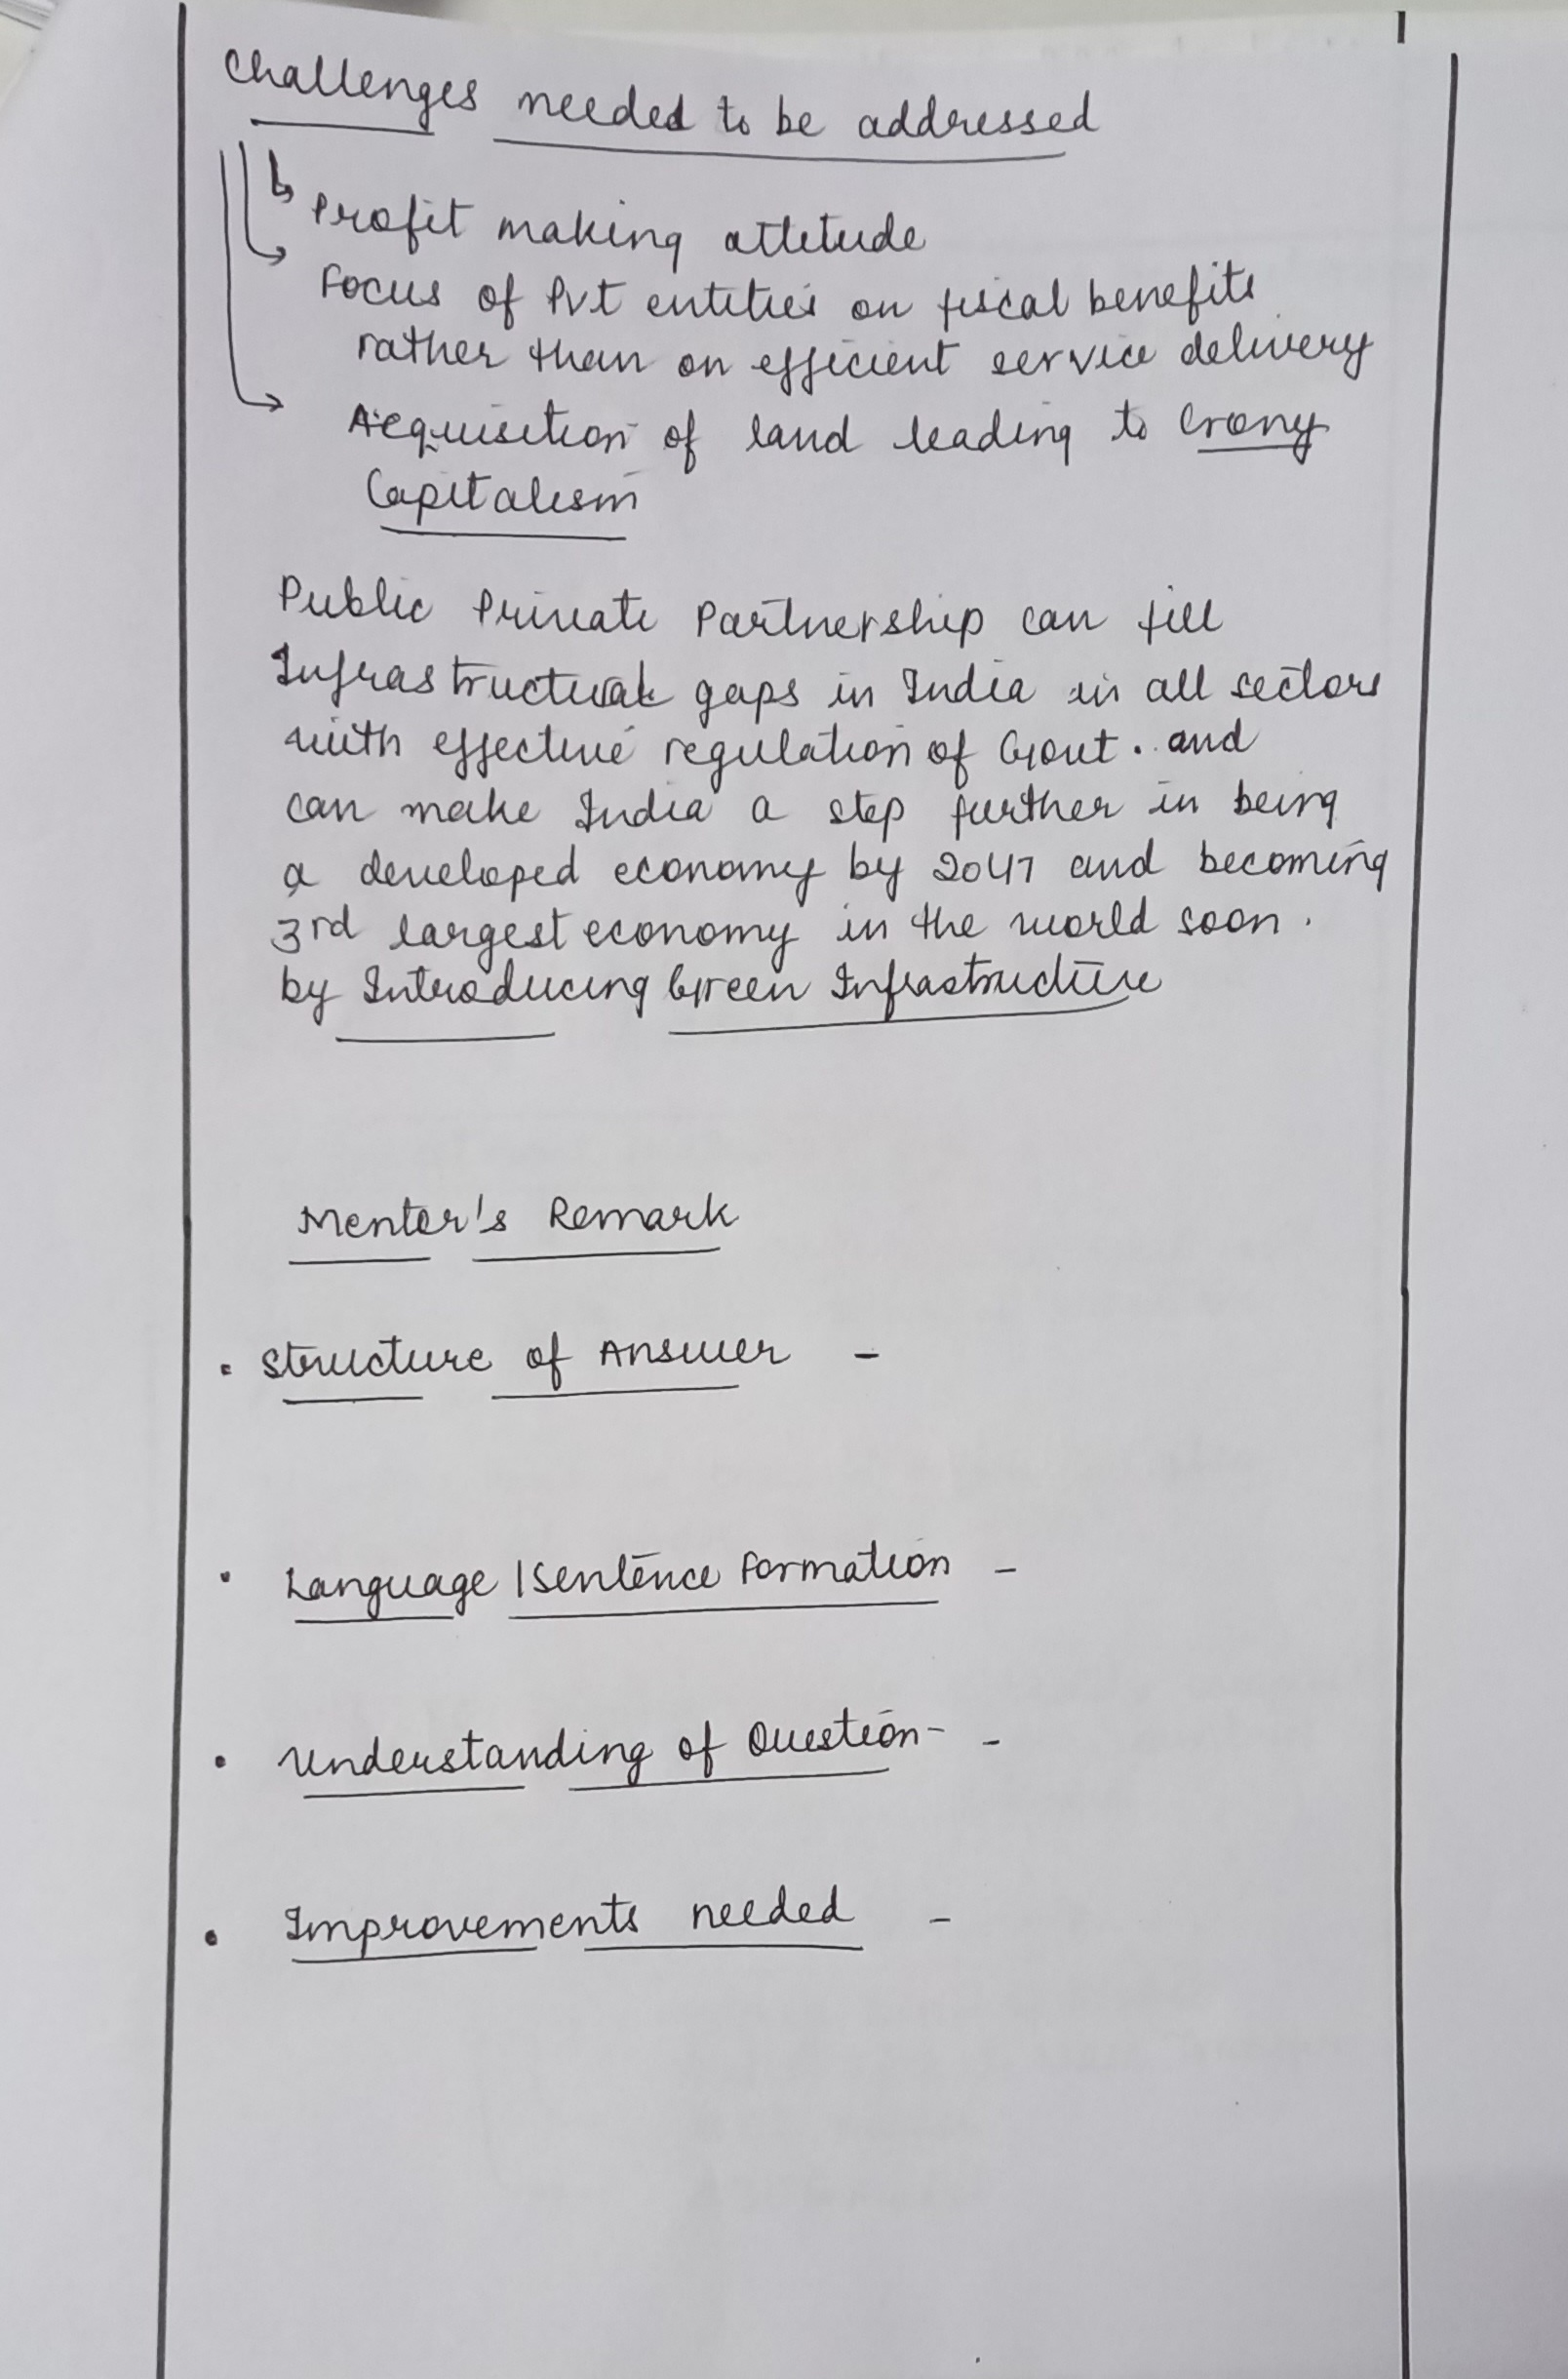 Challenges needed to be addressed
Profit making attitude
Focus of Pvt entities on fiscal benefits
rather than on efficient service delivery
Acquisition of land leading to Crony
Capitalism
Public Private Partnership can fill
Infrastructural gaps in India in all sectors
with effective regulation of Govt. and
can make India a step further in being
a developed economy by 2047 and becoming
3rd largest economy in the world soon.
by Introducing Green Infrastructure
Mentor's Remark
• Structure of Answer -
• Language / Sentence Formation -
• Understanding of Question - -
• Improvements needed -